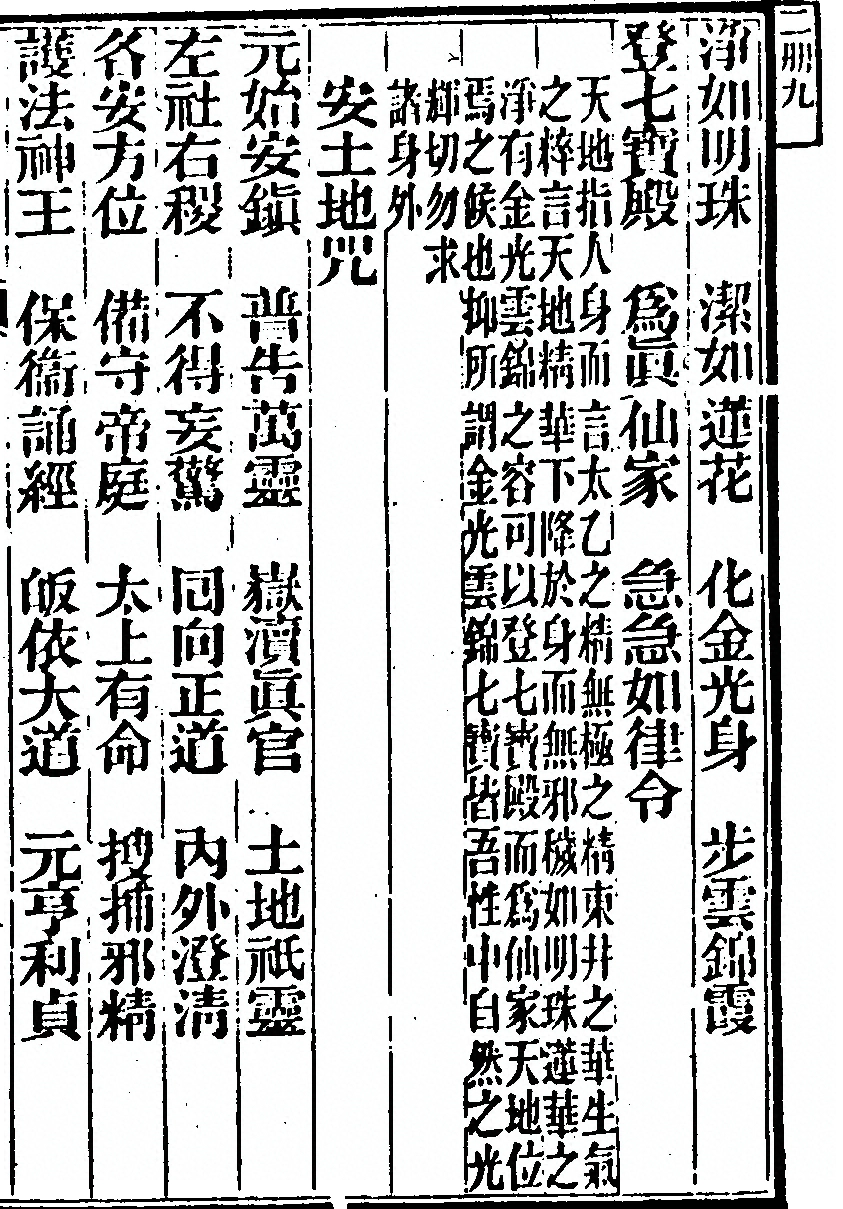 二册九
淨如明珠　潔如蓮花　化金光身　步雲錦霞
登七寶殿　爲眞仙家　急急如律令
天地指人身而言太乙之精無極之精東井之華生氣
之粹言天地精華下降於身而無邪穢如明珠蓮華之
淨有金光雲錦之容可以登七寳殿而爲仙家天地位
焉之候也抑所謂金光雲錦七寶皆吾性中自然之光
輝切勿求
諸身外
安土地咒
元始安鎭　普告萬靈　嶽瀆眞官　土地祇靈
左社右稷　不得妄驚　囘向正道　內外澄清
各安方位　備守帝庭　太上有命　搜捕邪精
護法神王　保衞誦經　皈依大道　元亨利貞